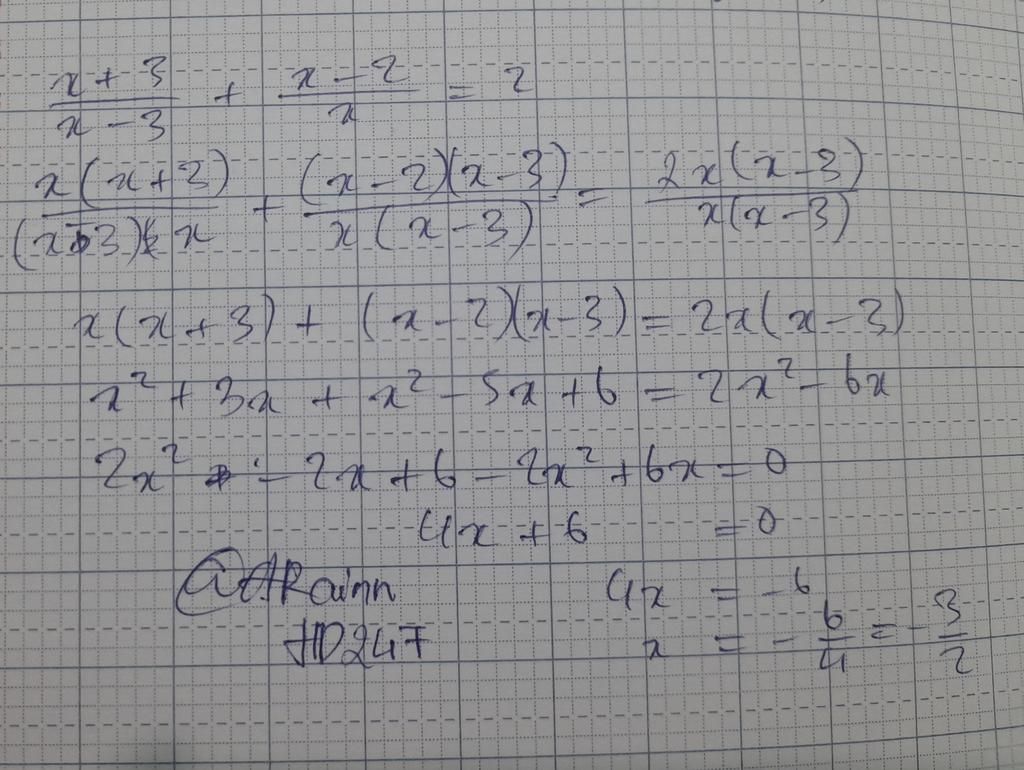 (x + 3)/(x - 3) + (x - 2)/x = 2
x(x+3)/(x-3)x + (x-2)(x-3)/x(x-3) = 2x(x-3)/x(x-3)
x(x+3) + (x-2)(x-3) = 2x(x-3)
x² + 3x + x² - 5x + 6 = 2x² - 6x
2x² - 2x + 6 - 2x² + 6x = 0
4x + 6 = 0
4x = -6
x = -6/4 = -3/2